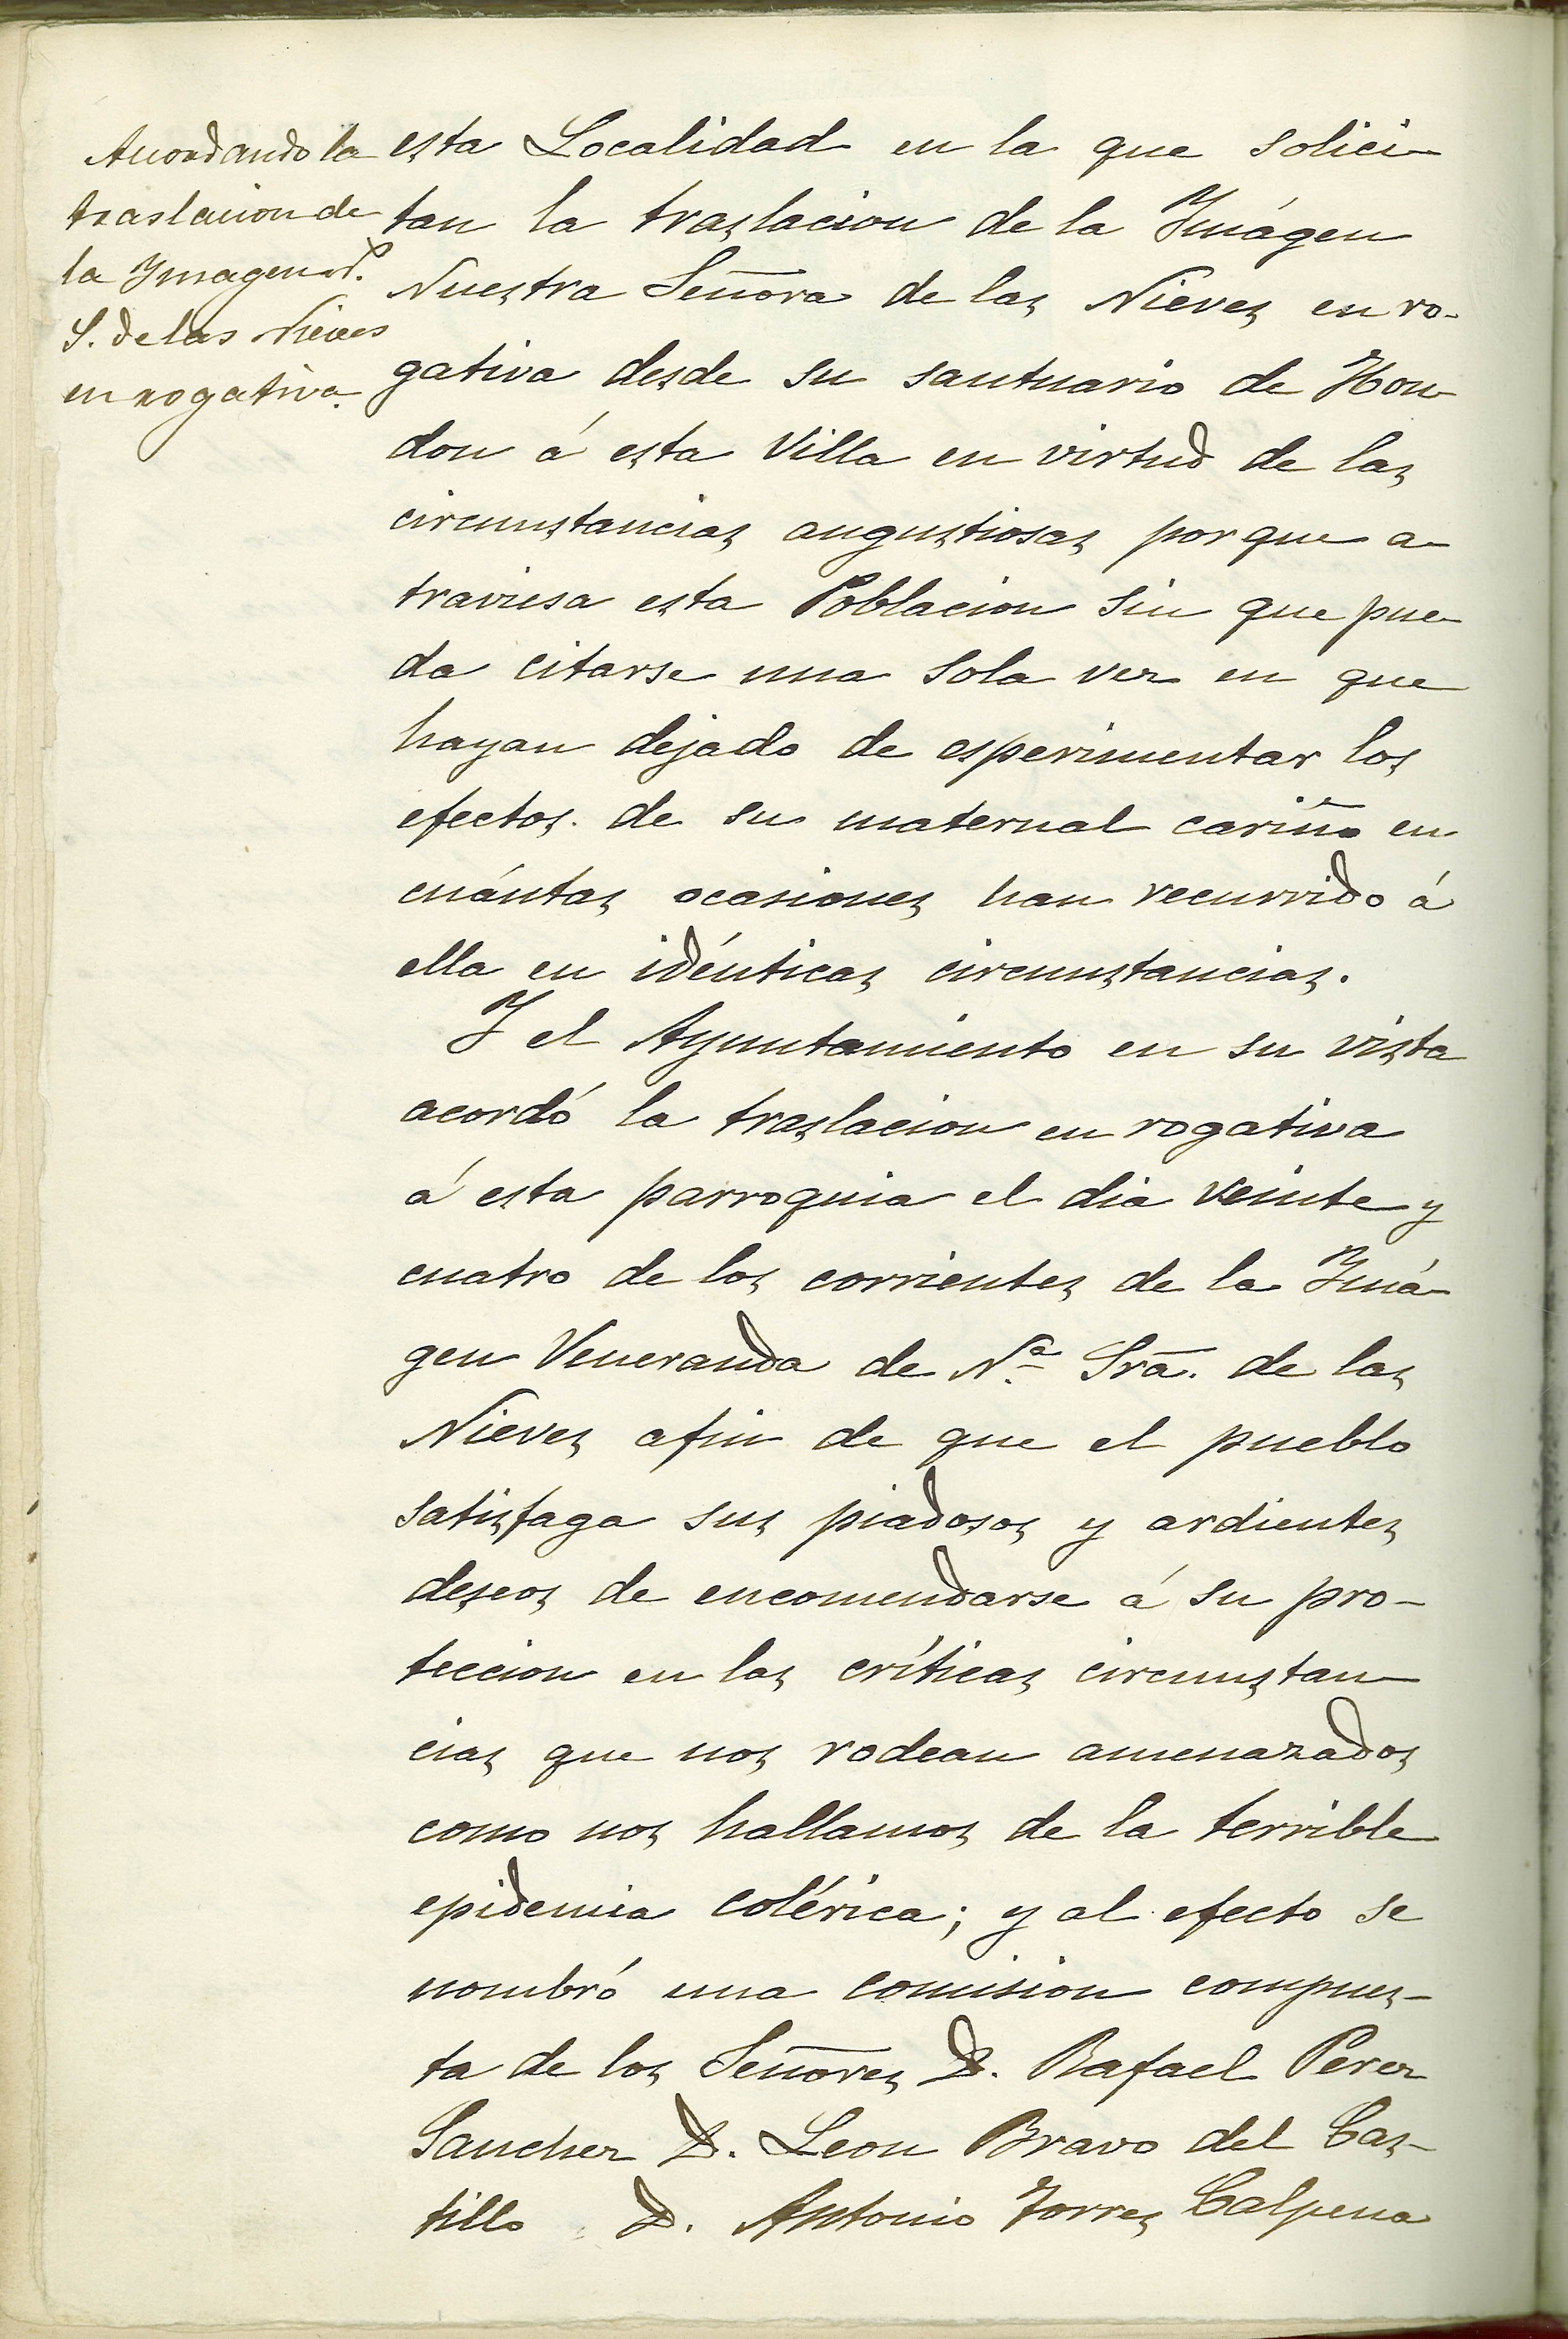 Acordando la
traslacion de
la Ymagen N.
S. de las Nieves
en rogativa.
esta Localidad en la que solici-
tan la traslacion de la Ymágen
Nuestra Señora de las Nieves en ro-
gativa desde su santuario de Hon-
don á esta Villa en virtud de las
circunstancias angustiosas porque a-
traviesa esta Poblacion sin que pue-
da citarse una sola vez en que
hayan dejado de esperimentar los
efectos de su maternal cariño en
cuántas ocasiones han recurrido á
ella en idénticas circunstancias.
Y el Ayuntamiento en su vista
acordó la traslacion en rogativa
á esta parroquia el dia veinte y
cuatro de los corrientes de la Ymá-
gen Veneranda de Nª Srā. de las
Nieves afin de que el pueblo
satisfaga sus piadosos y ardientes
deseos de encomendarse á su pro-
teccion en las críticas circunstan-
cias que nos rodean amenazados
como nos hallamos de la terrible
epidemia colérica; y al efecto se
nombró una comision compues-
ta de los Señores D. Rafael Perez
Sanchez D. Leon Bravo del Cas-
tillo D. Antonio Torres Calpena